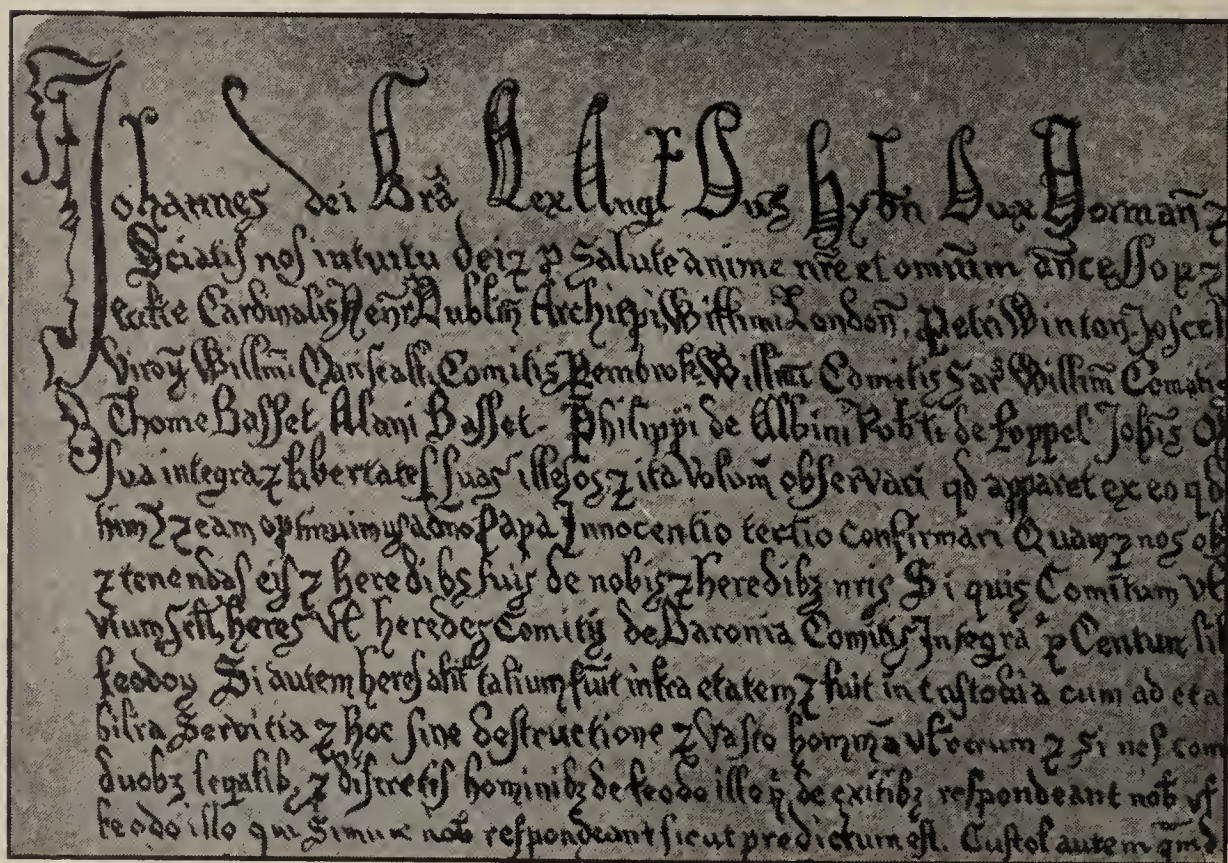 Johannes dei Grã Rex Angł Dñs Hybñ Dux Normañ ⁊
Sciatis nos intuitu dei ⁊ p Salute anime nr̃e et omniũm ãncessoꝝ ⁊
Cardinalis Henr̃ Dublin̄ Archiepĩ, Willimi Londoñ, Petri Wintoñ, Joscel
Viroꝝ Willm̃i Marscalli, Comitis Pembrok, Willm̃i Comitis Sar̃ Willim̃ Comitis
Thome Basset Alani Basset. Philippi de Albini Rob̃ti de Roppel Joh̃is
Sua integra ⁊ libertates suas illesos ⁊ ita Volum̃ observari qd apparet ex eo qd
Papa Innocentio tertio confirmari Quam ⁊ nos ob
⁊ tenendas eis ⁊ heredibꝫ suis de nobis ⁊ heredibꝫ nr̃is Si quis Comitum Vł
heres Vł heredes Comitis de Baronia Comitis Integra p Centum lib
feodoꝝ Si autem heres talium fũit infra etatem ⁊ fuit in Custodia cum ad eta
Servitia ⁊ hoc sine destructione ⁊ Vasto hominũ vł rerum ⁊ Si nos com
duobꝫ legalibꝫ ⁊ discretis hominibꝫ de feodo illo q̃ de exitibꝫ respondeant nob̃ vł
feodo illo qui Simili nob̃ respondeant sicut predictum est. Custos autem